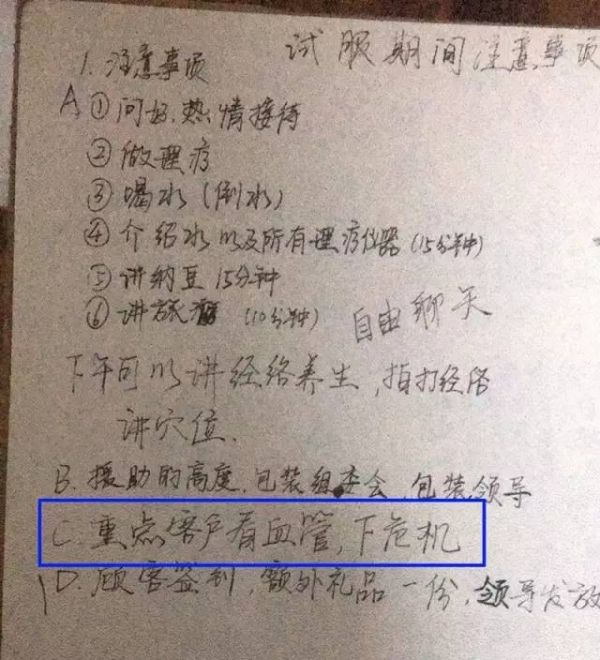 试服期间注意事项
1. 注意事项
A ①问好.热情接待
②做理疗
③喝水(倒水)
④介绍水以及所有理疗仪器(15分钟)
⑤讲纳豆15分钟
⑥讲 (10分钟) 自由聊天
下午可以讲经络养生,拍打经络
讲穴位.
B. 援助的高度,包装组委会,包装领导
C. 重点客户看血管,下危机
D. 顾客签到,额外礼品一份,领导发放